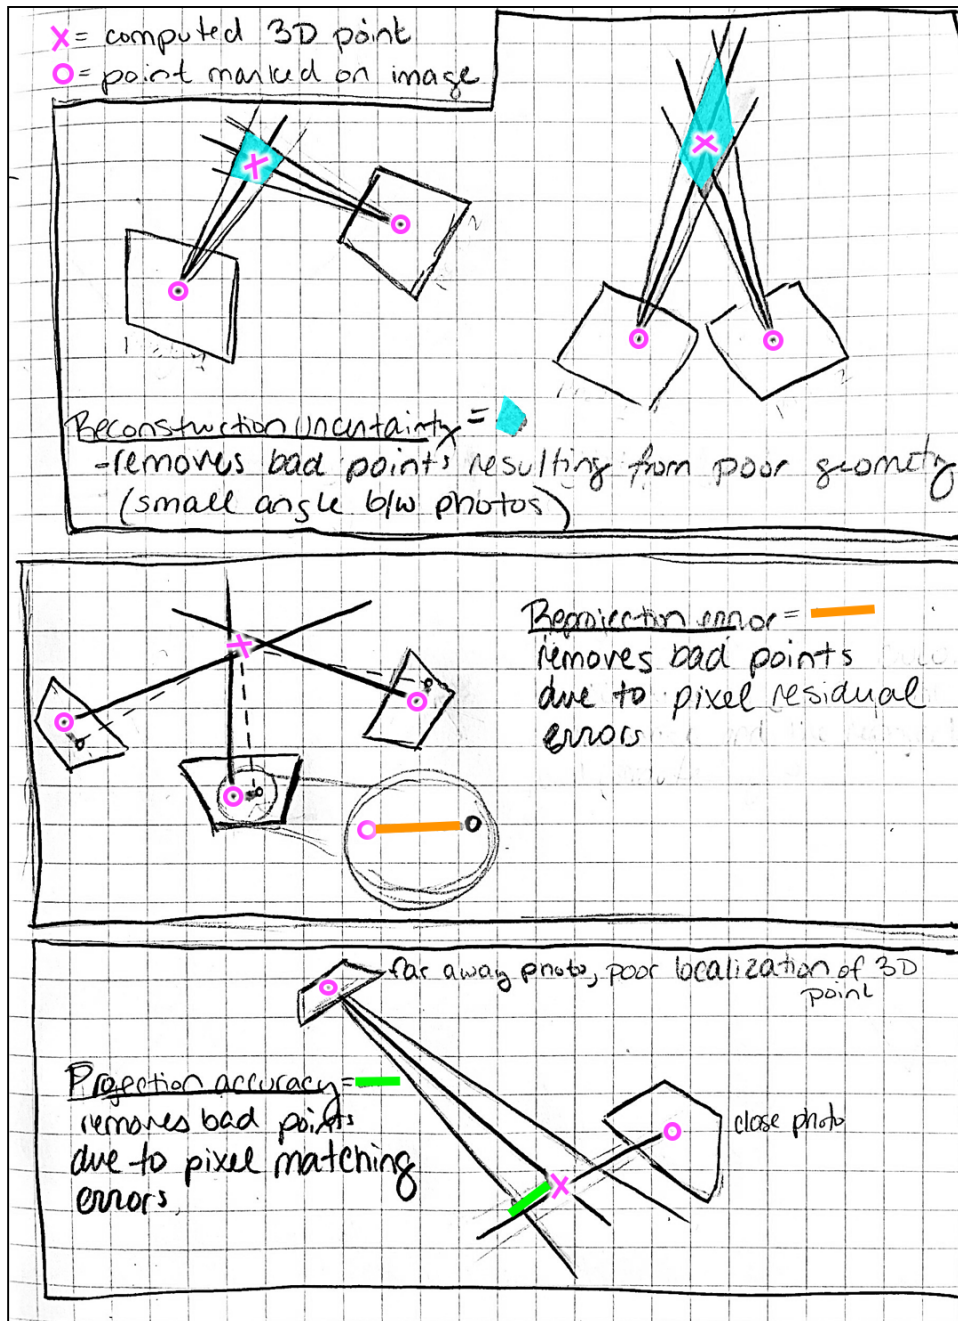 X = computed 3D point
O = point marked on image
Reconstruction uncertainty =
- removes bad points resulting from poor geometry
(small angle b/w photos)
Reprojection error =
removes bad points
due to pixel residual
errors
far away photo, poor localization of 3D
point
Projection accuracy =
removes bad points
due to pixel matching
errors
close photo